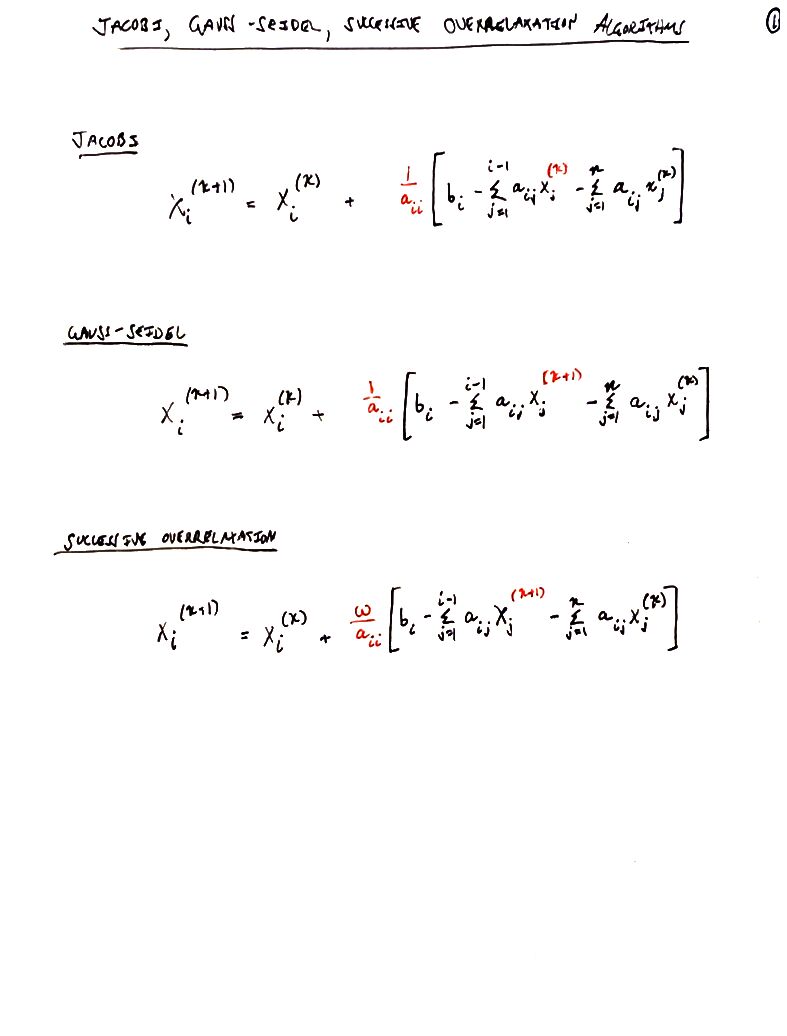 JACOBI, GAUSS-SEIDEL, SUCCESSIVE OVERRELAXATION ALGORITHMS ①
JACOBI
x_i^{(k+1)} = x_i^{(k)} + \frac{1}{a_{ii}} [ b_i - \sum_{j=1}^{i-1} a_{ij} x_j^{(k)} - \sum_{j=1}^{n} a_{ij} x_j^{(k)} ]
GAUSS-SEIDEL
x_i^{(k+1)} = x_i^{(k)} + \frac{1}{a_{ii}} [ b_i - \sum_{j=1}^{i-1} a_{ij} x_j^{(k+1)} - \sum_{j=1}^{n} a_{ij} x_j^{(k)} ]
SUCCESSIVE OVERRELAXATION
x_i^{(k+1)} = x_i^{(k)} + \frac{ω}{a_{ii}} [ b_i - \sum_{j=1}^{i-1} a_{ij} x_j^{(k+1)} - \sum_{j=1}^{n} a_{ij} x_j^{(k)} ]